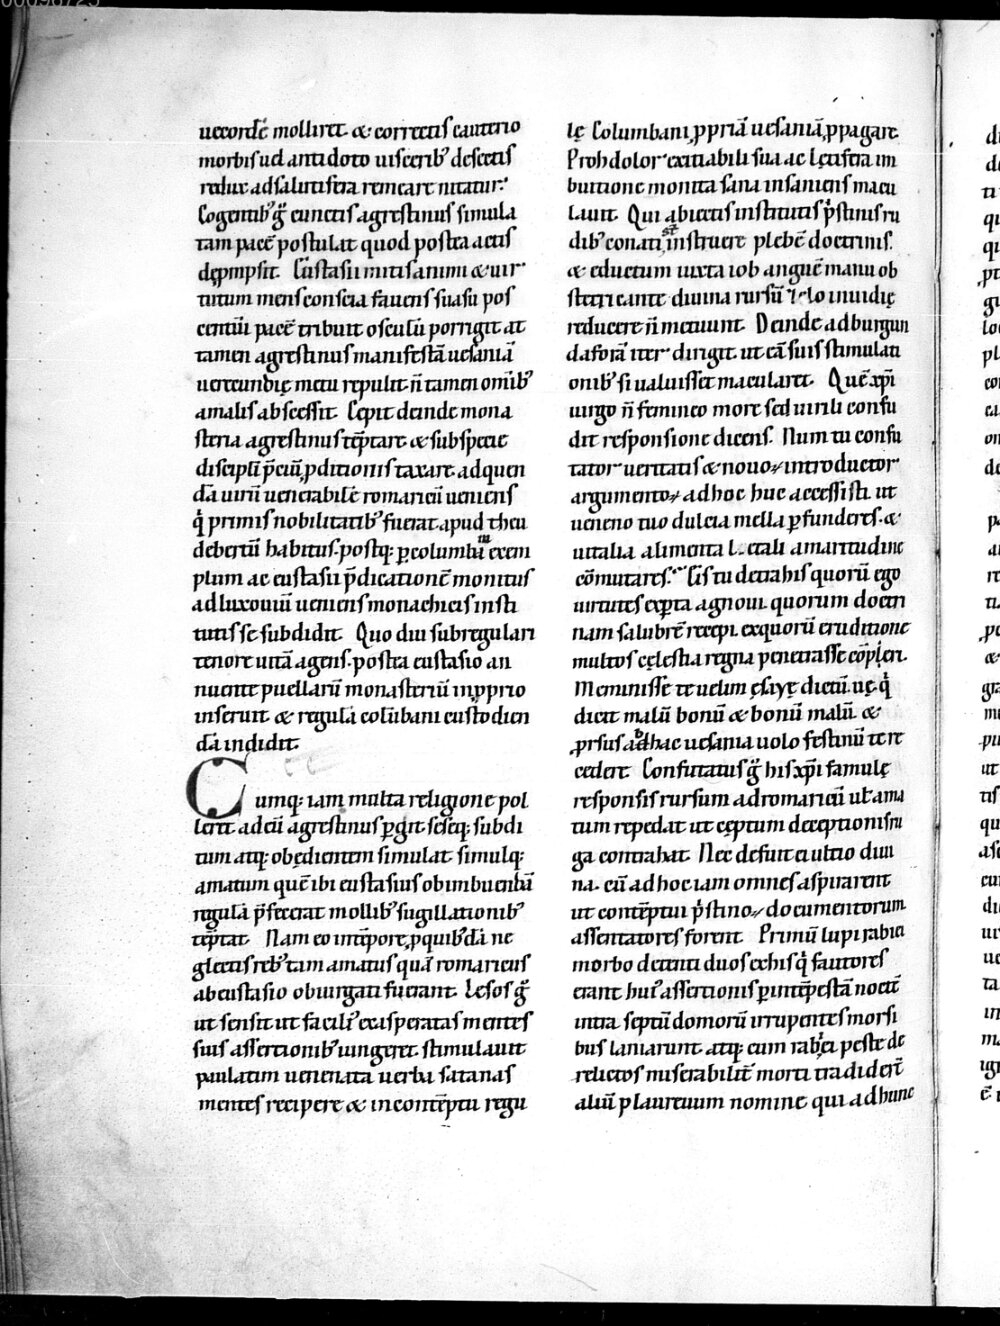 uecordē molliret & correctis cauterio
morbis uel antidoto uiscerib; desectis
redux ad salutifera remeare nitatur.
Cogentib; g̃ cunctis agrestinus simula
tam pacē postulat quod postea actis
dępmpsit. Eustasii mitis animi & uir
tutum mens conscia fauens suasu pos
centiū pacē tribuit osculū porrigit at
tamen agrestinus manifestā uesaniā
uerecundię metu repulit n̄ tamen omīb;
a malis abscessit. Cępit deinde mona
steria agrestinus tēptare & sub specie
disciplī p̄ciū ꝑditionis taxare ad quen
dā uirū uenerabilē romaricū ueniens
q̇ primis nobilitatib; fuerat apud theu
debertū habitus. postq; ꝑ columbani exem
plum ac eustasii p̄dicationē monitus
ad luxouiū ueniens monachicis insti
tutis se subdidit. Quo diu sub regulari
tenore uitā agens. postea eustasio an
nuente puellarū monasteriū in ꝓprio
inseruit & regulā colūbani custodien
dā indidit.
Cumq; iam multa religione pol
leret ad eū agrestinus ꝑgit seseq; subdi
tum atq; obędientem simulat simulq;
amatum quē ibi eustasius ob imbuendā
regulā p̄fecerat mollib; sugillationib;
tēptat. Nam eo in tēpore ꝓ quib; dā ne
glectis reb; tam amatus quā romaricus
ab eustasio obiurgati fuerant. Lesos g̃
ut sensit ut facili; exasperatas mentes
suis assertionib; iungeret. stimulauit
paulatim uenenata uerba satanas
mentes recipere & in contēptū regu
lę Columbani ꝓpriā uesaniā ꝓpagare.
Proh dolor exitiabili sua ac lętifera im
butione monita sana insaniens macu
lauit. Qui abiectis institutis p̄stinis ru
dib; conati st̄ instruere plebē doctrinis.
& eductum iuxta iob anguē manu ob
stetricante diuina rursū zelo inuidię
reducere n̄ metuunt. Deinde ad burgun
daforā iter dirigit. ut eā suis stimulati
onib; si ualuisset macularet. Quē xp̄i
uirgo n̄ femineo more sed uirili confu
dit responsione dicens. Num tu confu
tator ueritatis & nouoꝝ introductor
argumentoꝝ ad hoc huc accessisti. ut
ueneno tuo dulcia mella ꝑfunderes. &
uitalia alimenta letali amaritudine
cōmutares. Eis tu detrahis quorū ego
uirtutes exꝑta agnoui. quorum doctri
nam salubrē recepi. ex quorū eruditione
multos cęlestia regna penetrasse cōpleri.
Meminisse te uelim ęsayę dictū. uę q̇
dicit malū bonū & bonū malū &
ꝓrsus ab hac uesania uolo festinū te re
cedere. Confutatus g̃ his xp̄i famulę
responsis rursum ad romaricū ut ama
tum repedat ut cęptum deceptionis ru
ga contrahat. Nec defuit ei ultio diui
na. cū ad hoc iam omnes aspirarent
ut contēptui p̄stinoꝝ documentorum
assentatores forent. Primū lupi rabiei
morbo detenti duos ex his q̇ fautores
erant hui; assertionis ꝑ intēpestā noctē
intra septū domorū irrupentes morsi
bus laniarunt atq; eum rabiei peste de
relictos miserabilit̄ morti tradider̄t
aliū p laureuum nomine qui ad hunc